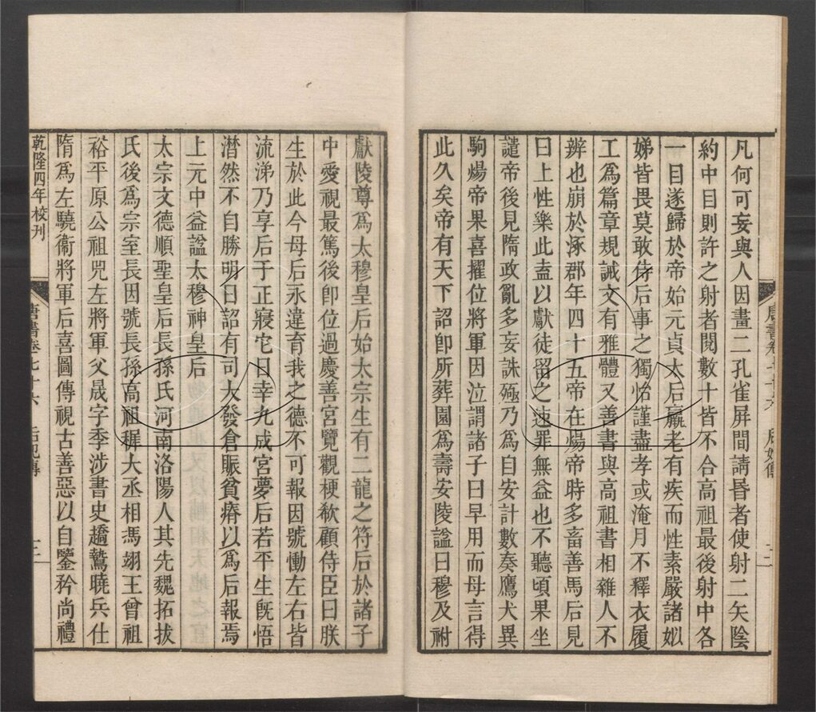 凡何可妄與人因畫二孔雀屏間請昏者使射二矢陰
約中目則許之射者閱數十皆不合高祖最後射中各
一目遂歸於帝始元貞太后羸老有疾而性素嚴諸姒
娣皆畏莫敢侍后事之獨怡謹盡孝或淹月不釋衣履
工爲篇章規誡文有雅體又善書與高祖書相雜人不
辨也崩於涿郡年四十五帝在煬帝時多畜善馬后見
曰上性樂此盍以獻徒留之速罪無益也不聽頃果坐
譴帝後見隋政亂多妄誅殛乃爲自安計數奏鷹犬異
駒煬帝果喜擢位將軍因泣謂諸子曰早用而母言得
此久矣帝有天下詔即所葬園爲壽安陵諡曰穆及祔
獻陵尊爲太穆皇后始太宗生有二龍之符后於諸子
中愛視最篤後卽位過慶善宮覽觀梗欷顧侍臣曰朕
生於此今母后永違育我之德不可報因號慟左右皆
流涕乃享后于正寢它日幸九成宮夢后若平生旣悟
潸然不自勝明日詔有司大發倉賑貧瘠以爲后報焉
上元中益諡太穆神皇后
太宗文德順聖皇后長孫氏河南洛陽人其先魏拓拔
氏後爲宗室長因號長孫高祖稺大丞相馮翊王曾祖
裕平原公祖兕左將軍父晟字季涉書史趫鷙曉兵仕
隋爲左驍衞將軍后喜圖傳視古善惡以自鑒矜尚禮
乾隆四年校刊
唐書卷七十六 后妃傳